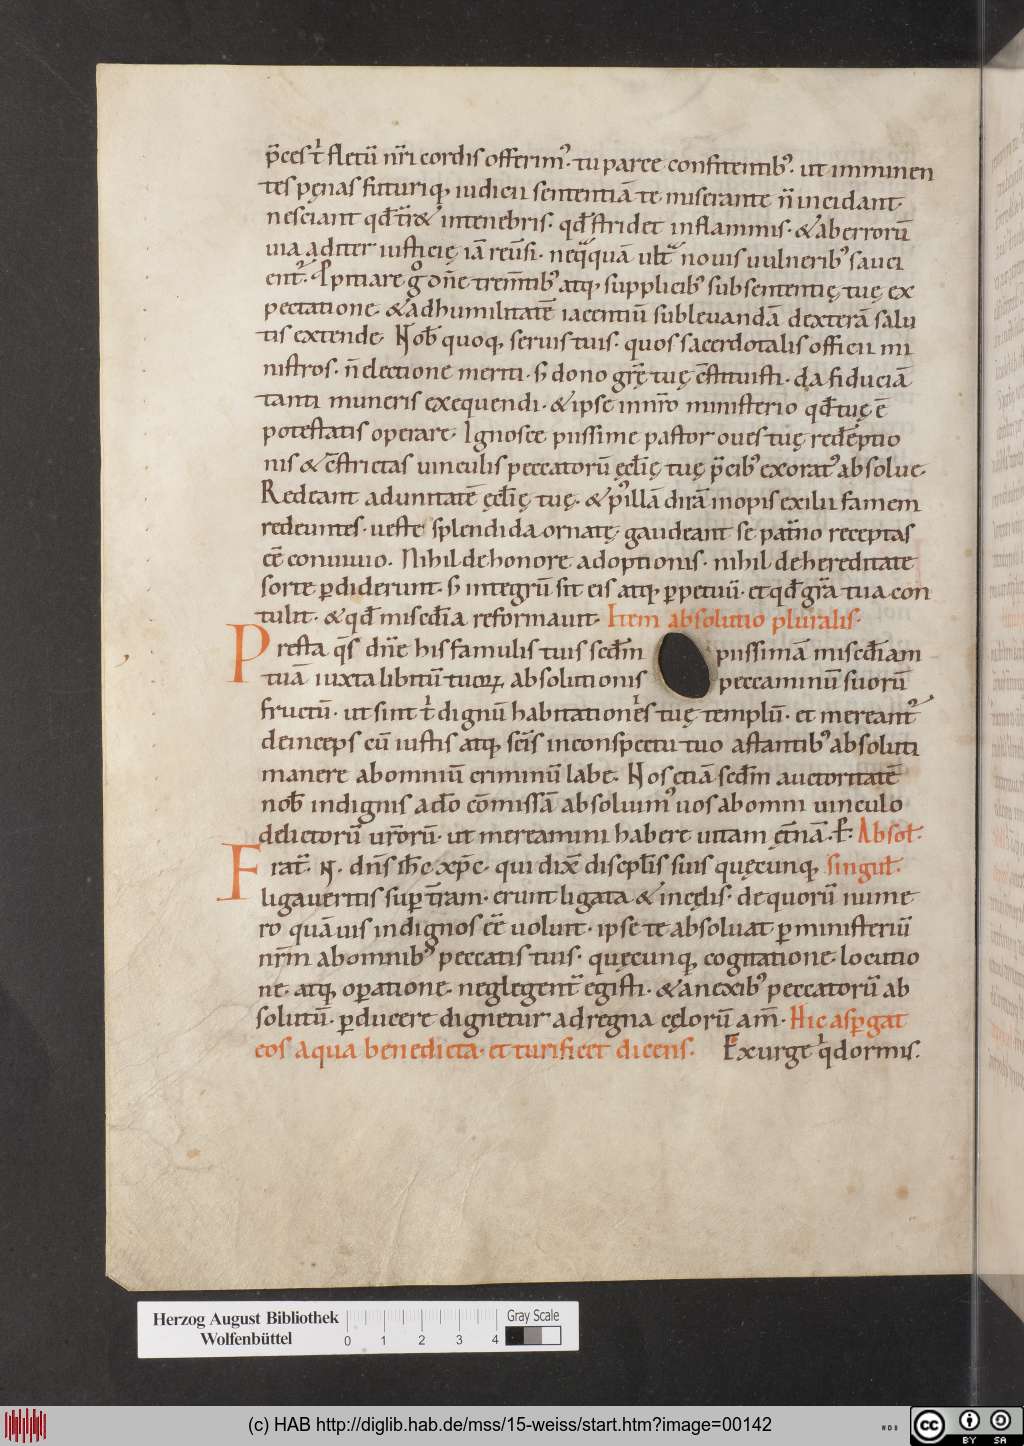 p̄ces t̓ fletū nr̄i cordis offerim᷒. tu parce confitentib᷒. ut imminen
tes pęnas futuriq; iudicii sententiā te miserante n̄ incidant.
nesciant qđ tr̄r& in tenebris. qđ stridet in flammis. & ab errorū
uia ad iter iusticię iā reūsi. neq̄quā ult̄ nouis uulnerib᷒ sauci
ent᷒. Ppitiare g̊ dn̄e trem̄tib᷒ atq; supplicib᷒ sub sententię tuę ex
pectatione. & ad humilitatē iacentiū subleuandā dexterā salu
tis extende. Nob̄ quoq; seruis tuis. quos sacerdotalis officii mi
nistros. n̄ electione meriti. s; dono grę̄ tuę c̄stituisti. da fiduciā
tanti muneris exequendi. & ipse in nr̄o ministerio qđ tuę ē
potestatis operare. Ignosce piissime pastor oues tuę redēptio
nis & c̄strictas uinculis peccatorū ęcl̄ię tuę p̄cib᷒ exorat᷒ absolue.
Redeant ad unitatē ęcl̄ię tuę. & p᷒ illā dirā inopis exilii famem
redeuntes. ueste splendida ornatę. gaudeant se patn̄o receptas
eē conuiuio. Nihil de honore adoptionis. nihil de hereditate
sorte pdiderunt. s; integrū sit eis atq; ppetuū. et qđ gr̄a tua con
tulit. & qđ mised̄ia reformauit. Item absolutio pluralis.
Presta q̄s dn̄e his famulis tuis sedm̄ piissimā mised̄iam
tuā iuxta libitū tuoꝝ. absolutionis peccaminū suorū
fructū. ut sint t̓ dignū habitationēs tuę templū. et mereant᷒
deinceps cū iustis atq; sc̄is in conspectu tuo astantib᷒ absoluti
manere ab omniū criminū labe. Nos etiā sedm̄ auctoritatē
nob̄ indignis a dō cōmissā absoluim᷒ uos ab omni uinculo
delictorū ur̄orū. ut mereamini habere uitam ęt̄nā. P̄. Absol̄.
Frat̄. N. dn̄s ih̄c xp̄c. qui dix̄ discipl̄is suis quęcunq; singul̄.
ligaueritis sup tr̄am. erunt ligata & in cęlis. de quorū nume
ro quāuis indignos eē uoluit. ipse te absoluat p ministeriū
nr̄m ab omnib᷒ peccatis tuis. quęcunq; cogitatione. locutio
ne. atq; opatione. neglegent̄ egisti. & a nexib᷒ peccatorū ab
solutū. pducere dignetur ad regna cęlorū am̄. Hic aspgat
eos aqua benedicta. et turificet dicens. Exurge q̓ dormis.
Herzog August Bibliothek
Wolfenbüttel
0 1 2 3 4
Gray Scale
(c) HAB http://diglib.hab.de/mss/15-weiss/start.htm?image=00142
cc BY SA